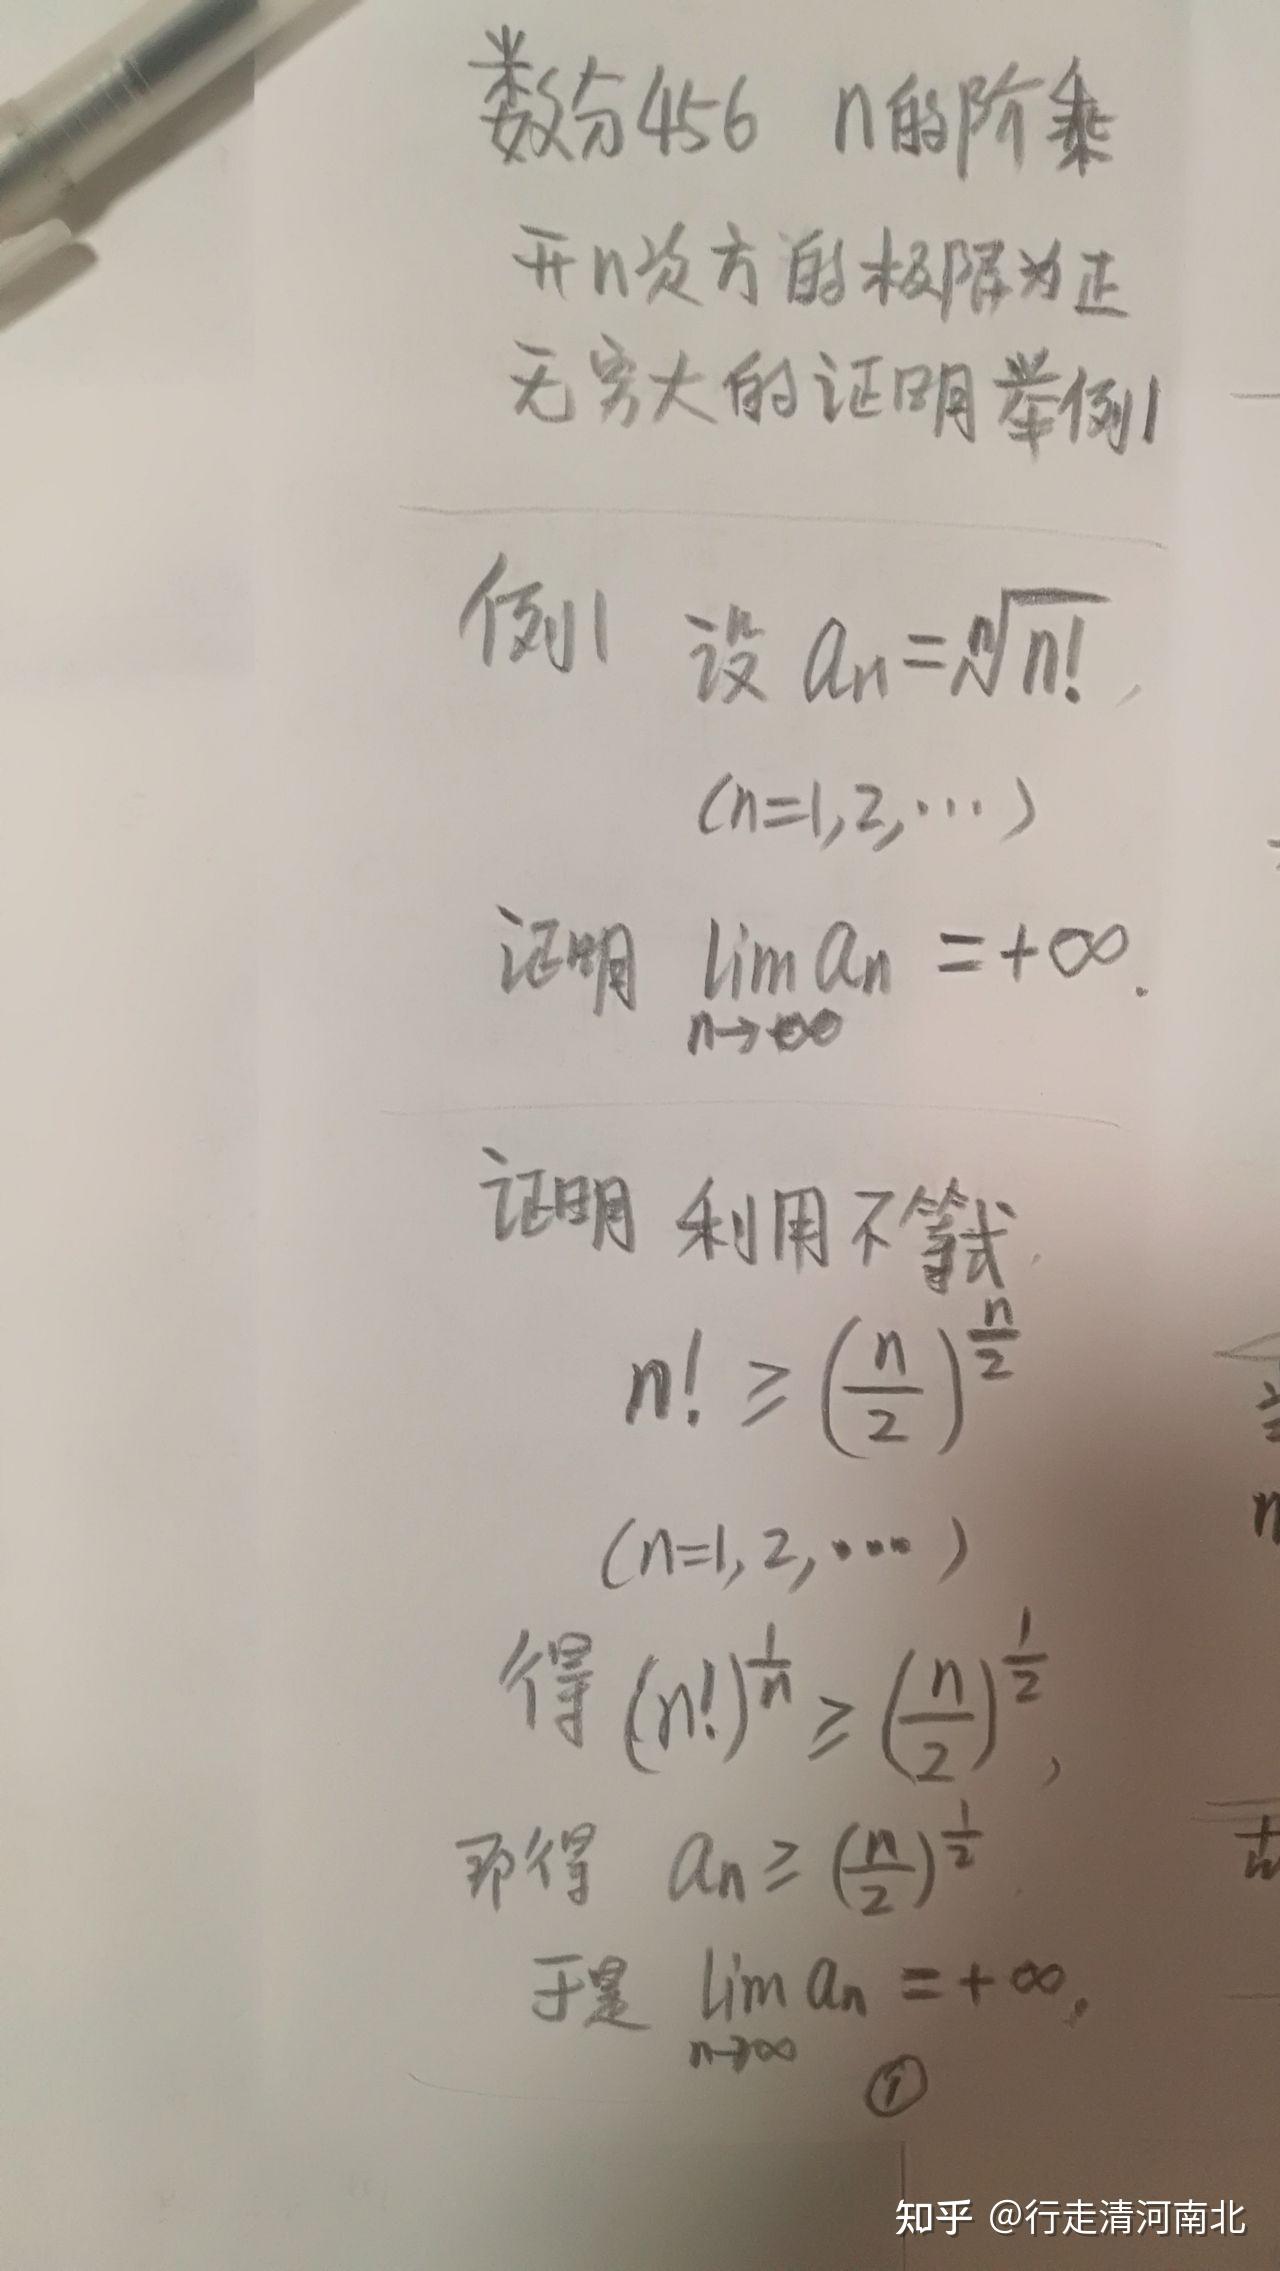 数分456 n的阶乘
开n次方的极限为正
无穷大的证明举例1
例1 设 aₙ=ⁿ√n!,
(n=1,2,···)
证明 lim aₙ = +∞.
n→∞
证明 利用不等式
n! ≥ (n/2)^(n/2)
(n=1,2,···)
得 (n!)^(1/n) ≥ (n/2)^(1/2),
即得 aₙ ≥ (n/2)^(1/2)
于是 lim aₙ = +∞.
n→∞
①
知乎 @行走清河南北